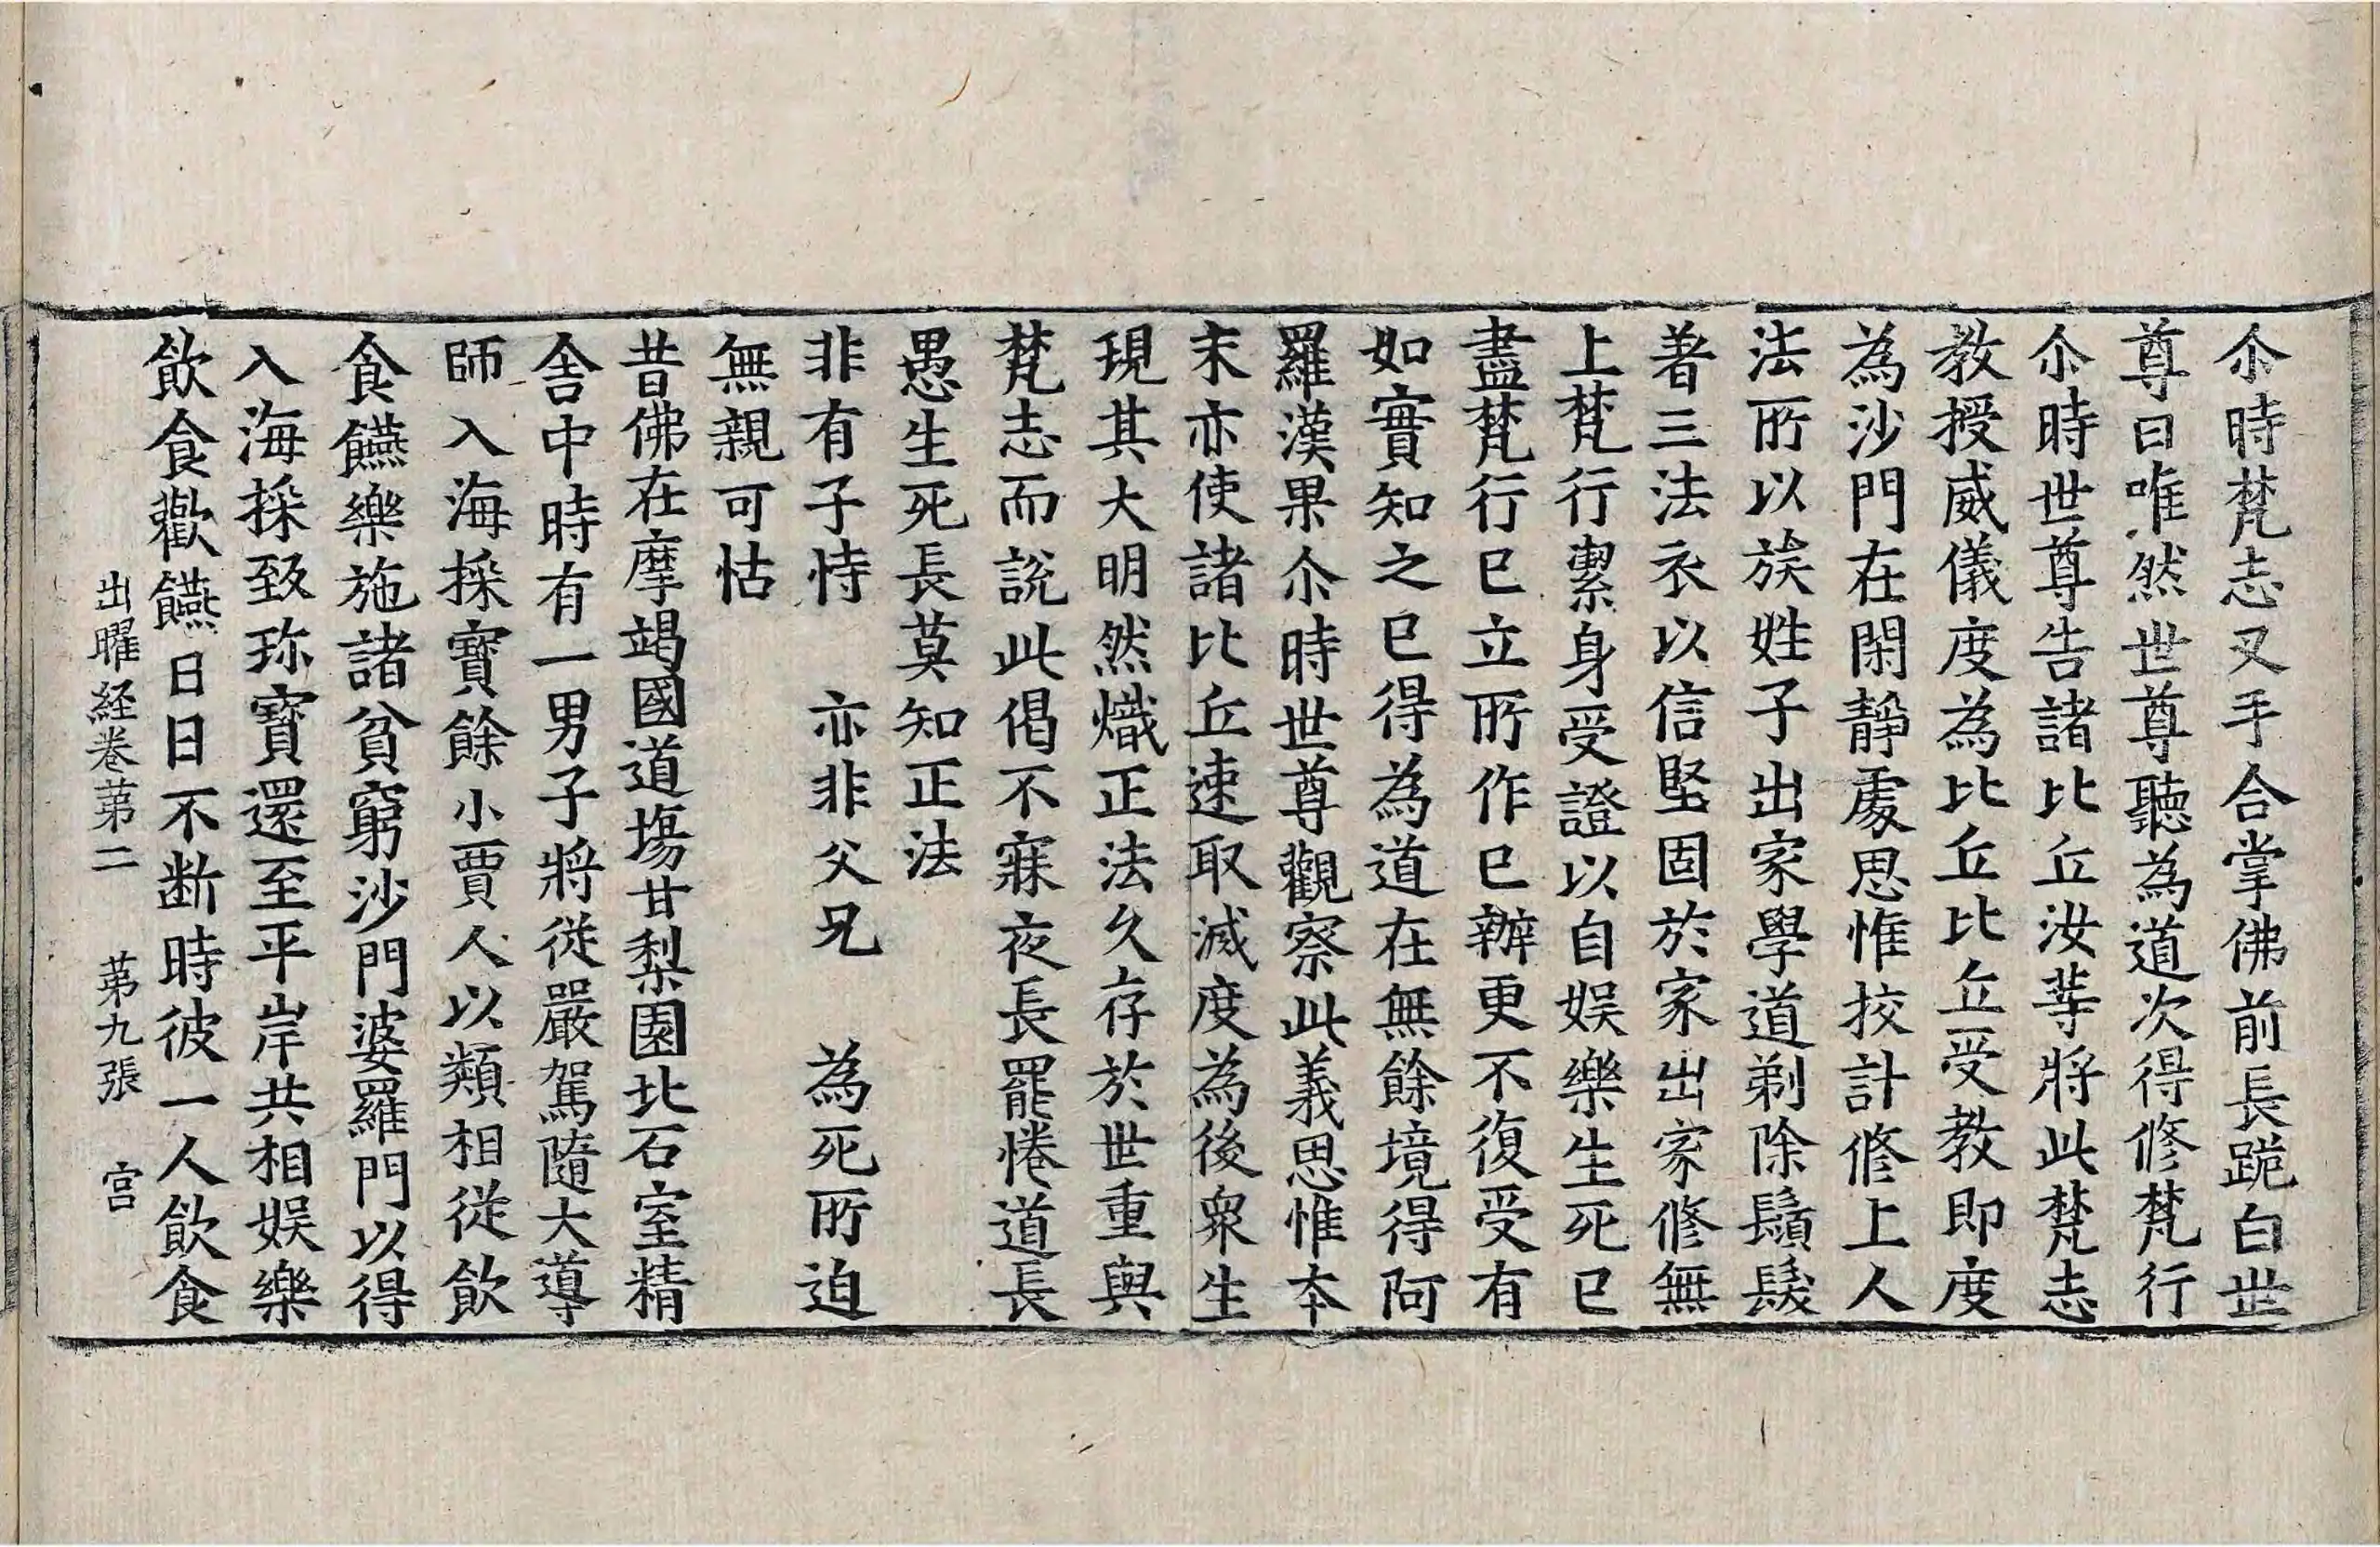 尒時梵志叉手合掌佛前長跪白世
尊曰唯然世尊聽為道次得修梵行
尒時世尊告諸比丘汝䓁將此梵志
教授威儀度為比丘比丘受教即度
為沙門在閑靜處思惟挍計修上人
法所以族姓子出家學道剃除鬚髮
著三法衣以信堅固於家出家修無
上梵行潔身受證以自娛樂生死已
盡梵行已立所作已辦更不復受有
如實知之已得為道在無餘境得阿
羅漢果尒時世尊觀察此義思惟本
末亦使諸比丘速取滅度為後衆生
現其大明然熾正法久存於世重與
梵志而說此偈不寐夜長罷惓道長
愚生死長莫知正法
非有子恃　亦非父兄　為死所迫
無親可怙
昔佛在摩竭國道塲甘梨園北石室精
舍中時有一男子將從嚴駕隨大導
師入海採寶餘小賈人以類相從飲
食饌樂施諸貧窮沙門婆羅門以得
入海採致珎寶還至平岸共相娛樂
飲食歡饌日日不断時彼一人飲食
出曜経卷苐二　苐九張　宫